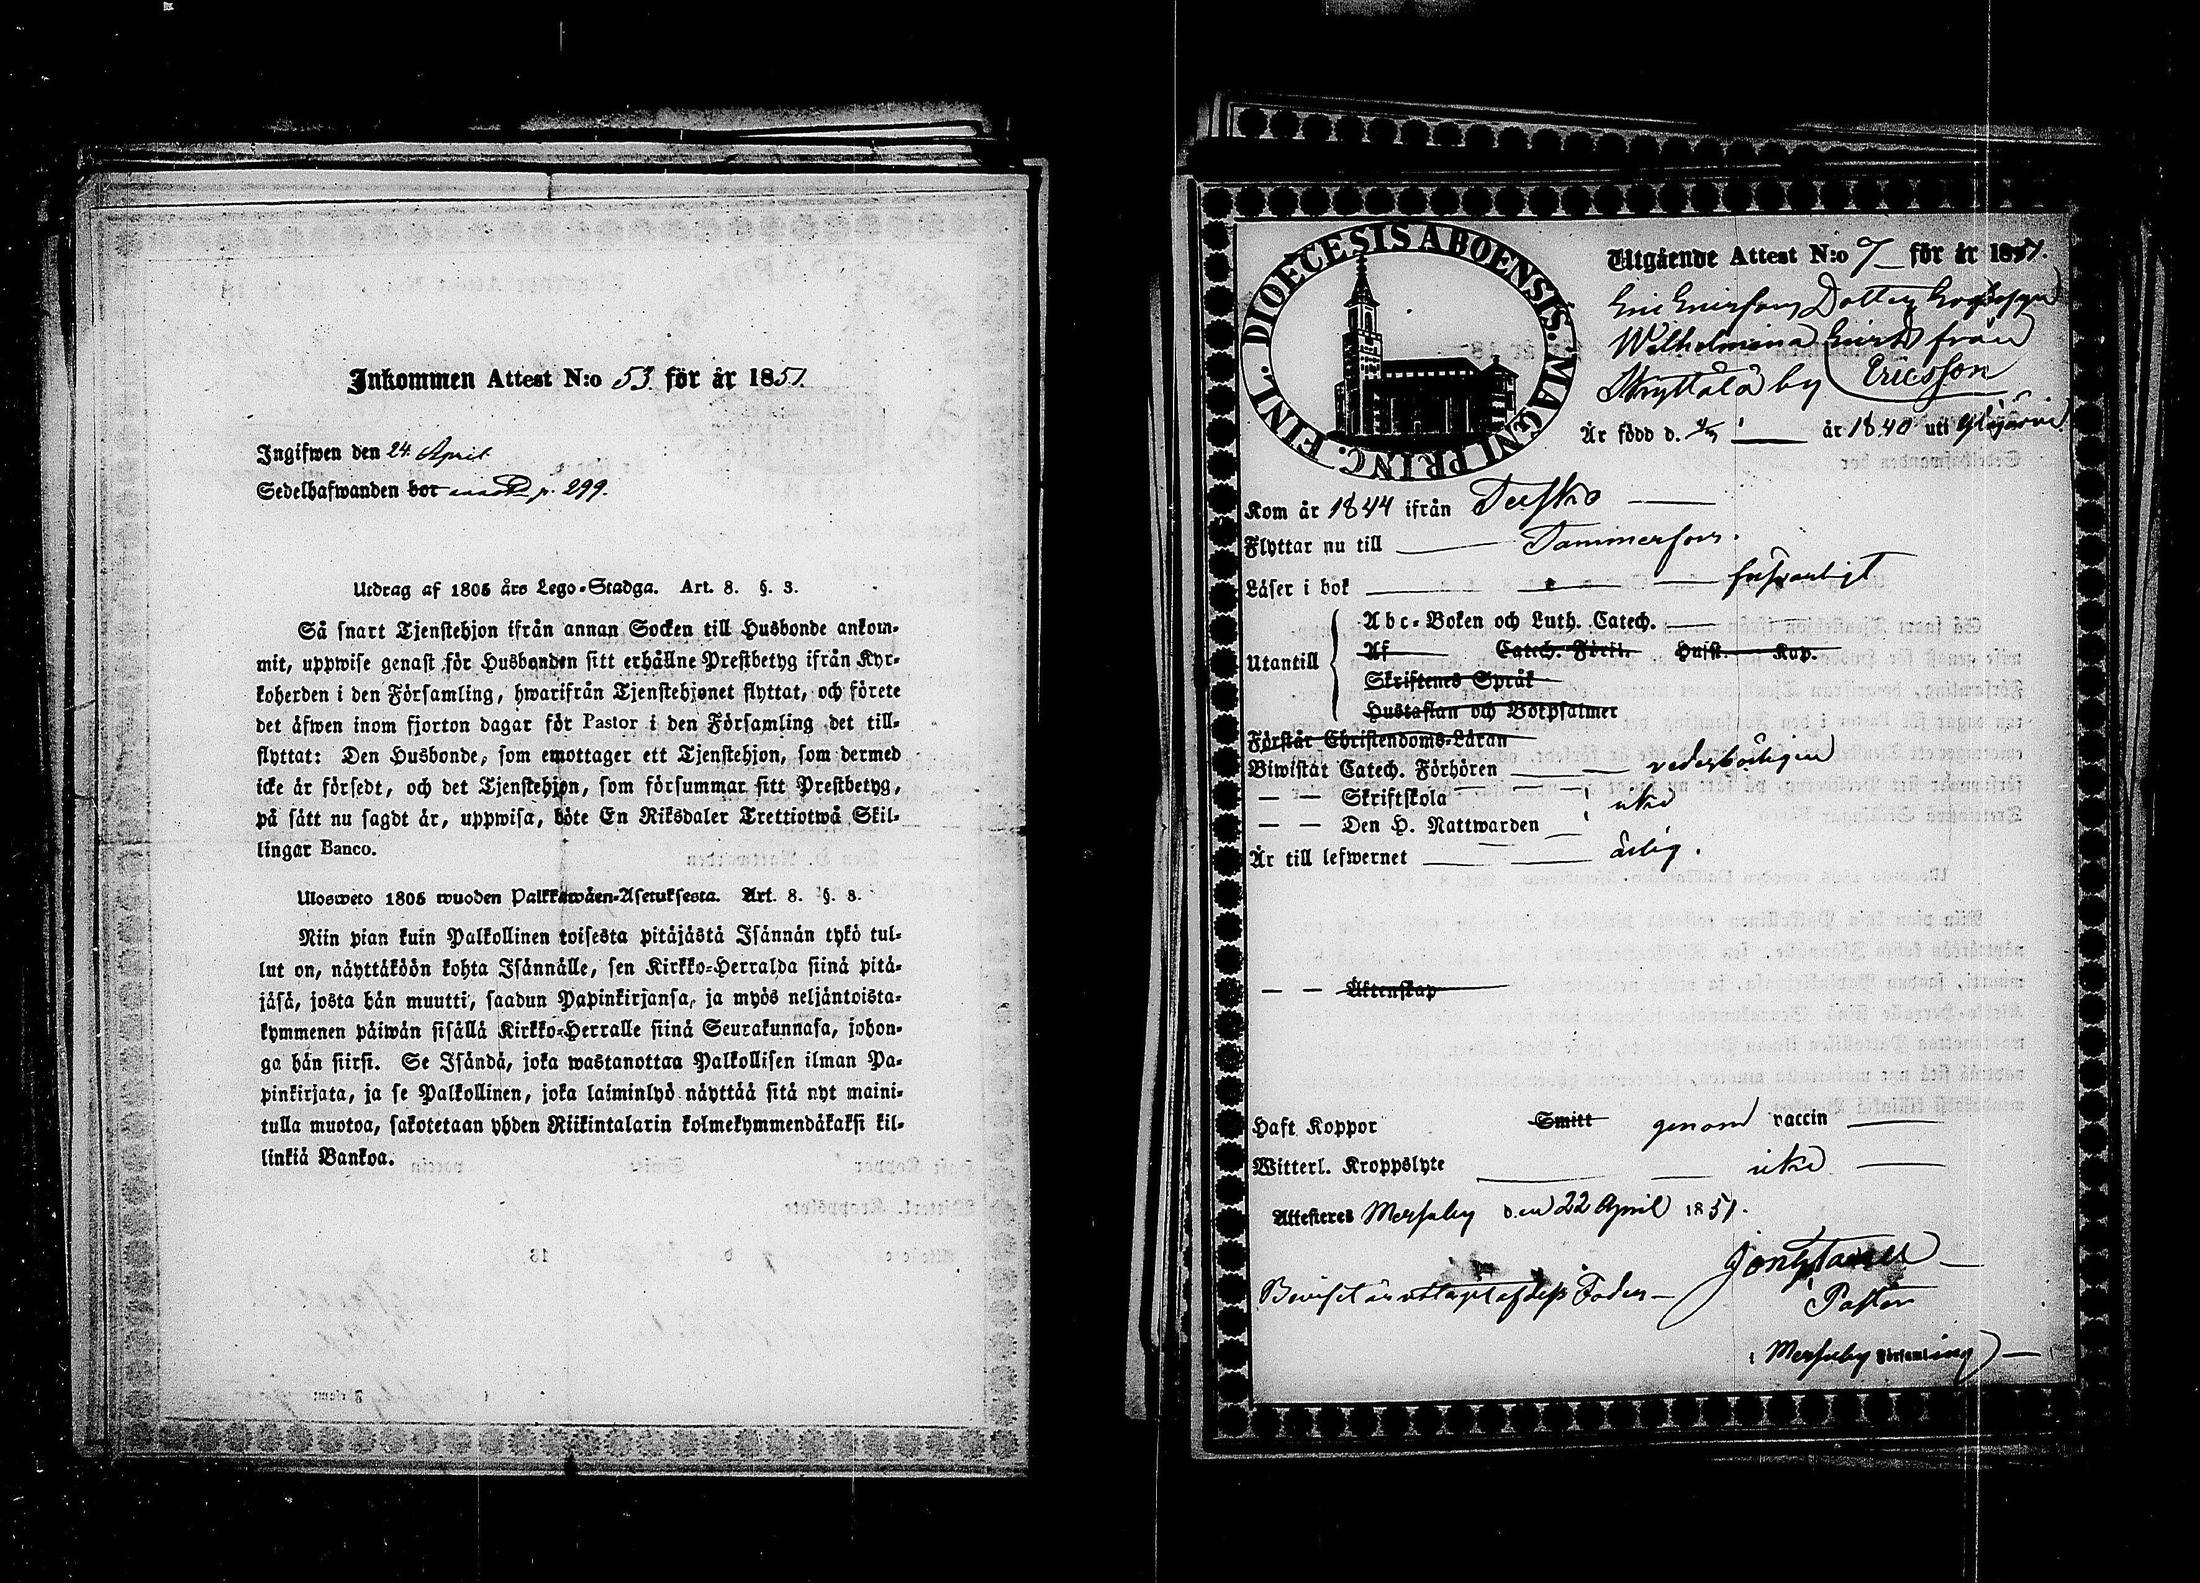 Inkommen Attest N:o 53 för år 1851.
Ingifwen den 24 April
Sedelhafwanden bor p. 299.
Utdrag af 1805 års Lego-Stadga. Art. 8. §. 3.
Så snart Tjenstehjon ifrån annan Socken till Husbonde ankom-
mit, uppwise genast för Husbonden sitt erhållne Prestbetyg ifrån Kyr-
koherden i den Församling, hwarifrån Tjenstehjonet flyttat, och förete
det äfwen inom fjorton dagar för Pastor i den Församling det till-
flyttat: Den Husbonde, som emottager ett Tjenstehjon, som dermed
icke är försedt, och det Tjenstehjon, som försummar sitt Prestbetyg,
på sätt nu sagdt är, uppwisa, böte En Riksdaler Trettiotwå Skil-
lingar Banco.
Ulosweto 1805 wuoden Palkkawäen-Asetuksesta. Art. 8. §. 3.
Niin pian kuin Palkollinen toisesta pitäjästä Isännän tykö tul-
lut on, näyttäköön kohta Isännälle, sen Kirkko-Herralda siinä pitä-
jäsä, josta hän muutti, saadun Papinkirjansa, ja myös neljäntoista-
kymmenen päiwän sisällä Kirkko-Herralle siinä Seurakunnasa, johon-
ga hän siirsi. Se Isändä, joka wastanottaa Palkollisen ilman Pa-
pinkirjata, ja se Palkollinen, joka laiminlyö näyttää sitä nyt maini-
tulla muotoa, sakotetaan yhden Riikintalarin kolmekymmendäkaksi kil-
linkiä Bankoa.
DIOECESIS ABOENSIS. MAGNI PRINC. FINL.
Utgående Attest N:o 7 för år 1851.
Eric Ericsons Dotter
Wilhelmina från
by Ericsson
Är född d. år 1840 uti Ylöjärvi
Kom år 1844 ifrån Teisko
Flyttar nu till Tammerfors.
Läser i bok försvarligt
Utantill
Abc-Boken och Luth. Catech.
Af Catech. Förkl. Hufst. Kap.
Skriftenes Språk
Hustaflan och Botpsalmer
Förstår Christendoms-Läran
Biwistat Catech. Förhören vederbörligen
— — Skriftskola icke
— — Den H. Nattwarden
Är till lefwernet ärlig.
— — Äktenskap
Haft Koppor Smitt genom vaccin
Witterl. Kroppslyte icke
Attesteres Messuby den 22 April 1851.
Beviset är uttagit af dess Fader
Pastor
i Messuby Församling